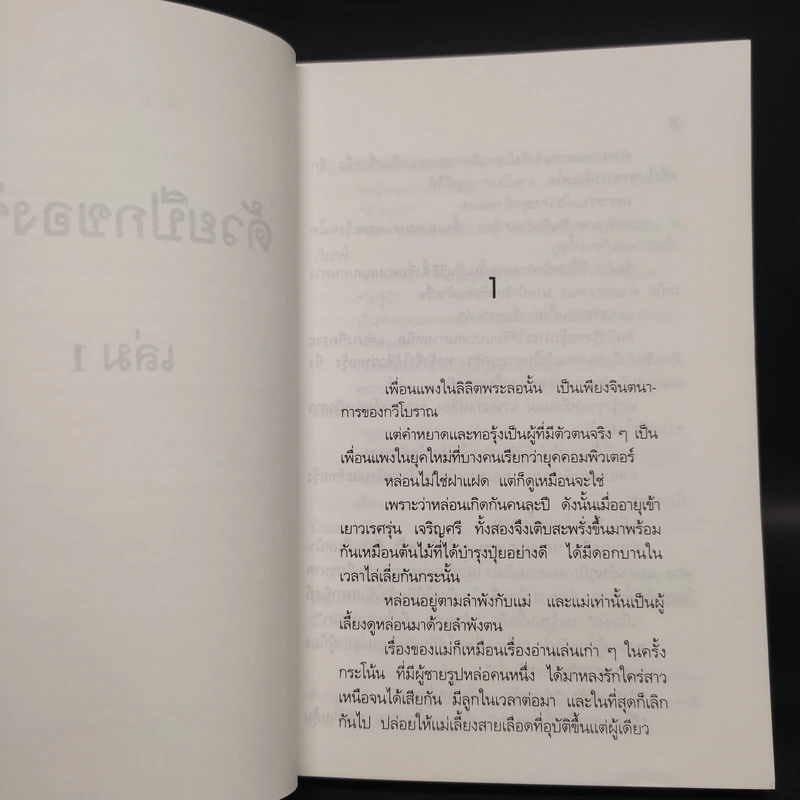 ด้วยปีกของรั
เล่ม 1
1
เพื่อนแพงในลิลิตพระลอนั้น เป็นเพียงจินตนา-
การของกวีโบราณ
แต่คำหยาดและทอรุ้งเป็นผู้ที่มีตัวตนจริง ๆ เป็น
เพื่อนแพงในยุคใหม่ที่บางคนเรียกว่ายุคคอมพิวเตอร์
หล่อนไม่ใช่ฝาแฝด แต่ก็ดูเหมือนจะใช่
เพราะว่าหล่อนเกิดกันคนละปี ดังนั้นเมื่ออายุเข้า
เยาวเรศรุ่น เจริญศรี ทั้งสองจึงเติบสะพรั่งขึ้นมาพร้อม
กันเหมือนต้นไม้ที่ได้บำรุงปุ๋ยอย่างดี ได้มีดอกบานใน
เวลาไล่เลี่ยกันกระนั้น
หล่อนอยู่ตามลำพังกับแม่ และแม่เท่านั้นเป็นผู้
เลี้ยงดูหล่อนมาด้วยลำพังตน
เรื่องของแม่ก็เหมือนเรื่องอ่านเล่นเก่า ๆ ในครั้ง
กระโน้น ที่มีผู้ชายรูปหล่อคนหนึ่ง ได้มาหลงรักใคร่สาว
เหนือจนได้เสียกัน มีลูกในเวลาต่อมา และในที่สุดก็เลิก
กันไป ปล่อยให้แม่เลี้ยงสายเลือดที่อุบัติขึ้นแต่ผู้เดียว